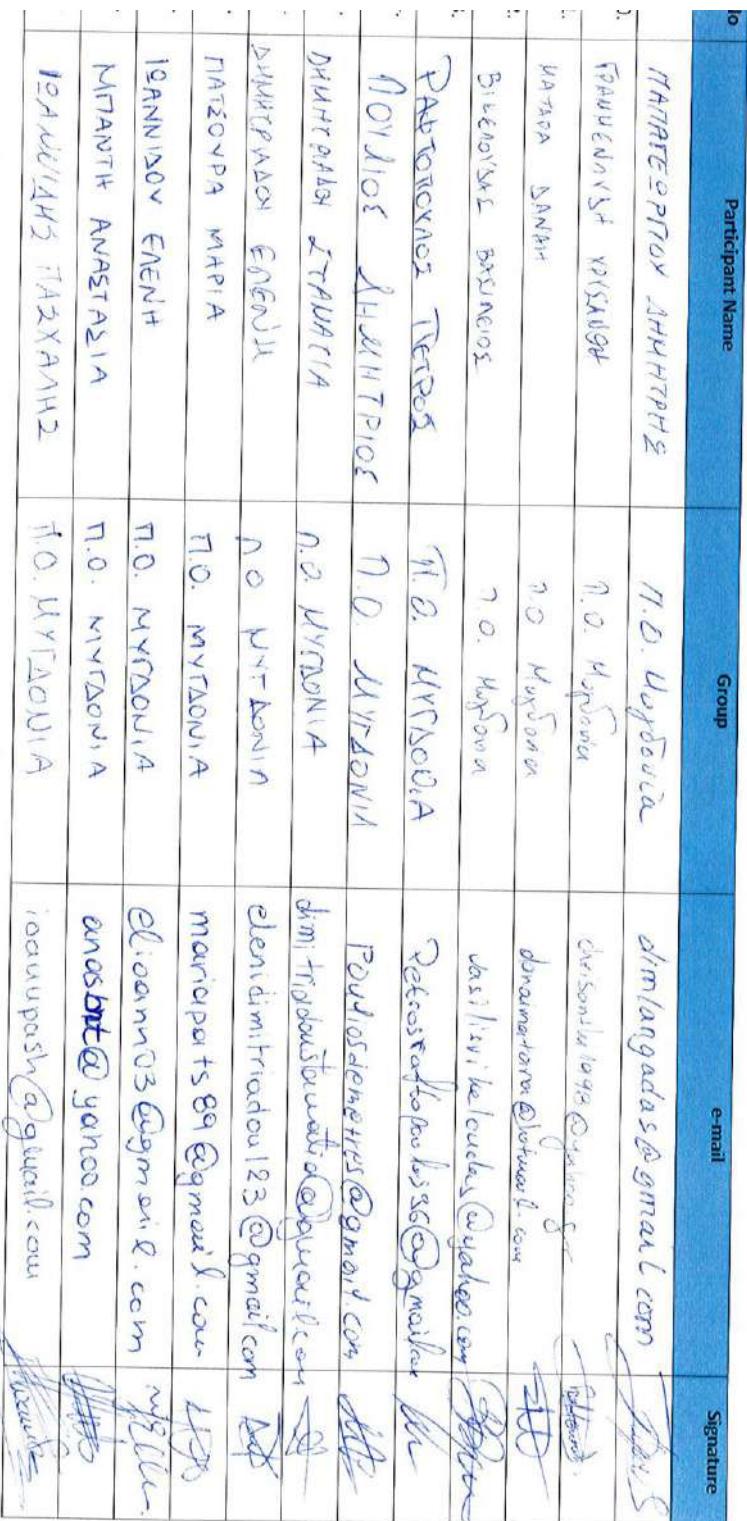 Participant Name Group e-mail Signature
ΠΑΠΑΓΕΩΡΓΙΟΥ ΔΗΜΗΤΡΗΣ Π.Ο. Μυγδονία dimlangadas@gmail.com
ΧΡΥΣΑΝΘΗ Π.Ο. Μυγδονία
ΜΑΤΑΡΑ ΔΑΝΑΗ Π.Ο Μυγδονία danaimatara@hotmail.com
ΒΙΚΕΛΟΥΔΑΣ ΒΑΣΙΛΕΙΟΣ Π.Ο. Μυγδονία vasilisvikeloudas@yahoo.com
ΡΑΦΤΟΠΟΥΛΟΣ ΠΕΤΡΟΣ Π.Ο. ΜΥΓΔΟΝΙΑ Petrosraftopoulos96@gmail.com
ΠΟΥΛΙΟΣ ΔΗΜΗΤΡΙΟΣ Π.Ο. ΜΥΓΔΟΝΙΑ Pouliosdemetres@gmail.com
ΔΗΜΗΤΡΙΑΔΟΥ ΣΤΑΜΑΤΙΑ Π.Ο. ΜΥΓΔΟΝΙΑ dimitriadoustamatia@gmail.com
ΔΗΜΗΤΡΙΑΔΟΥ ΕΛΕΝΗ Π.Ο ΜΥΓΔΟΝΙΑ elenidimitriadou123@gmail.com
ΠΑΤΣΟΥΡΑ ΜΑΡΙΑ Π.Ο. ΜΥΓΔΟΝΙΑ mariapats89@gmail.com
ΙΩΑΝΝΙΔΟΥ ΕΛΕΝΗ Π.Ο. ΜΥΓΔΟΝΙΑ elioann03@gmail.com
ΜΠΑΝΤΗ ΑΝΑΣΤΑΣΙΑ Π.Ο. ΜΥΓΔΟΝΙΑ anasbnt@yahoo.com
ΙΩΑΝΝΙΔΗΣ ΠΑΣΧΑΛΗΣ Π.Ο. ΜΥΓΔΟΝΙΑ ioannpash@gmail.com